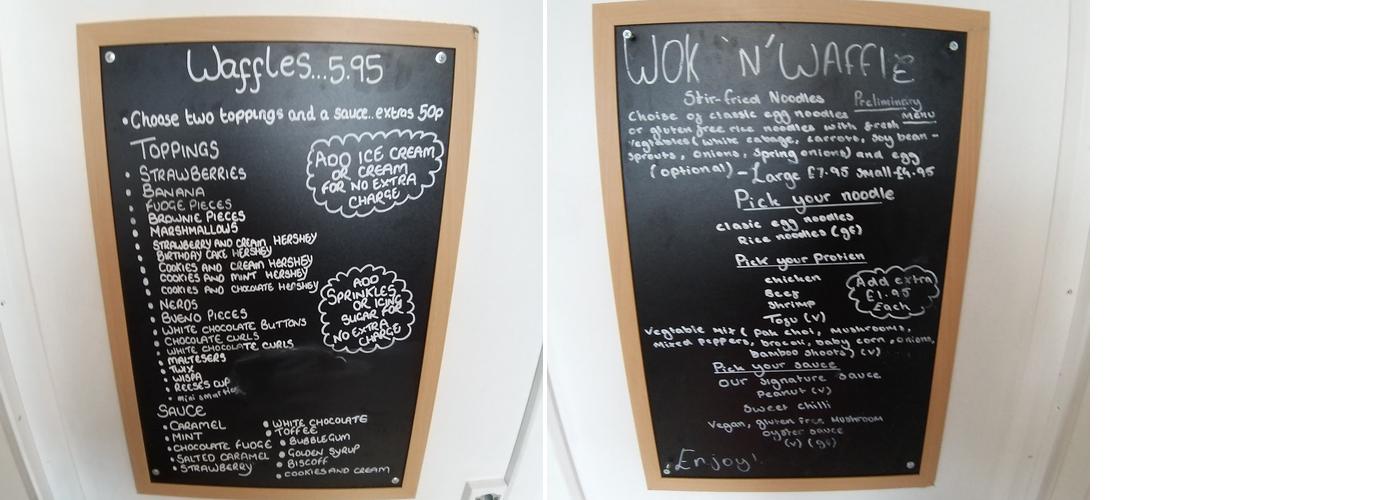 Waffles...5.95
• Choose two toppings and a sauce..extras 50p
TOPPINGS
• STRAWBERRIES
• BANANA
• FUDGE PIECES
• BROWNIE PIECES
• MARSHMALLOWS
• STRAWBERRY AND CREAM HERSHEY
• BIRTHDAY CAKE HERSHEY
• COOKIES AND CREAM HERSHEY
• COOKIES AND MINT HERSHEY
• COOKIES AND CHOCOLATE HERSHEY
• NERDS
• BUENO PIECES
• WHITE CHOCOLATE BUTTONS
• CHOCOLATE CURLS
• WHITE CHOCOLATE CURLS
• MALTESERS
• TWIX
• WISPA
• REESES CUP
• mini smarties
ADD ICE CREAM
OR CREAM
FOR NO EXTRA
CHARGE
ADD
SPRINKLES
OR ICING
SUGAR FOR
NO EXTRA
CHARGE
SAUCE
• CARAMEL
• MINT
• CHOCOLATE FUDGE
• SALTED CARAMEL
• STRAWBERRY
• WHITE CHOCOLATE
• TOFFEE
• BUBBLEGUM
• GOLDEN SYRUP
• BISCOFF
• COOKIES AND CREAM
WOK 'N' WAFFLE
Stir-fried Noodles
Preliminary
Menu
Choise of classic egg noodles
or gluten free rice noodles with fresh
vegetables (white cabage, carrots, soy bean-
sprouts, onions, spring onions) and egg
(optional) - Large £7.95 small £4.95
Pick your noodle
clasic egg noodles
Rice noodles (gf)
Pick your Protien
chicken
Beef
Shrimp
Tofu (v)
Add extra
£1.95
Each
Vegtable Mix ( Pak choi, Mushrooms,
Mixed Peppers, brocoli, baby corn, onions,
bamboo shoots) (v)
Pick your sauce
Our Signature sauce
Peanut (v)
Sweet chilli
Vegan, gluten free Mushroom
oyster sauce
(v) (gf)
Enjoy!